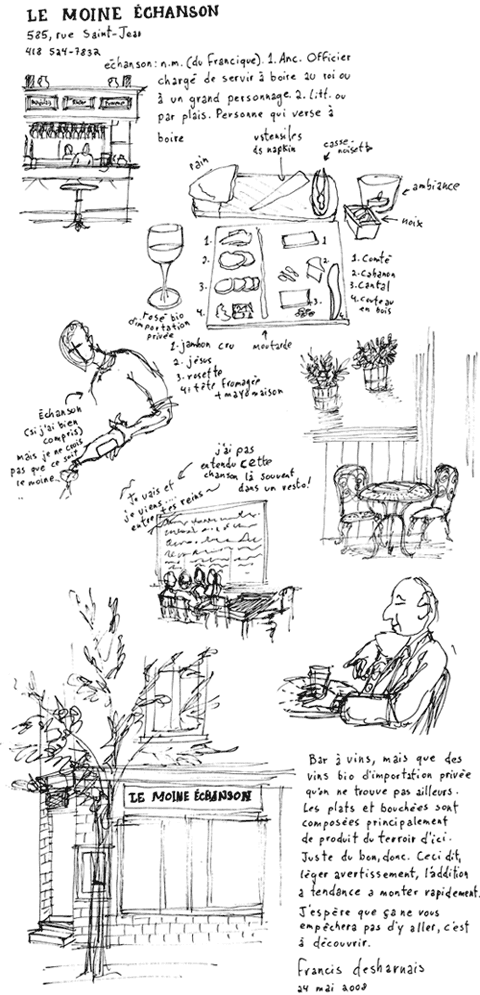 LE MOINE ÉCHANSON
585, rue Saint-Jean
418 524-7832
échanson: n.m. (du Francique). 1. Anc. Officier
chargé de servir à boire au roi ou
à un grand personnage. 2. Litt. ou
par plais. Personne qui verse à
boire
ustensiles
ds napkin
casse-
noisette
pain
ambiance
noix
rosé bio
d'importation
privée
1.
2.
3.
4.
1
2
3.
4
1. Comté
2. Cabanon
3. Cantal
4. couteau
en bois
moutarde
1. jambon cru
2. jésus
3. rosette
4. tête fromagée
+ mayo maison
Échanson
(si j'ai bien
compris)
mais je ne crois
pas que ce soit
le moine...
j'ai pas
entendu cette
chanson là souvent
dans un resto!
~ Je vais et
je viens...
entre tes reins ~
LE MOINE ÉCHANSON
Bar à vins, mais que des
vins bio d'importation privée
qu'on ne trouve pas ailleurs.
Les plats et bouchées sont
composées principalement
de produit du terroir d'ici.
Juste du bon, donc. Ceci dit,
léger avertissement, l'addition
a tendance a monter rapidement.
J'espère que ça ne vous
empêchera pas d'y aller, c'est
à découvrir.
Francis desharnais
24 mai 2008